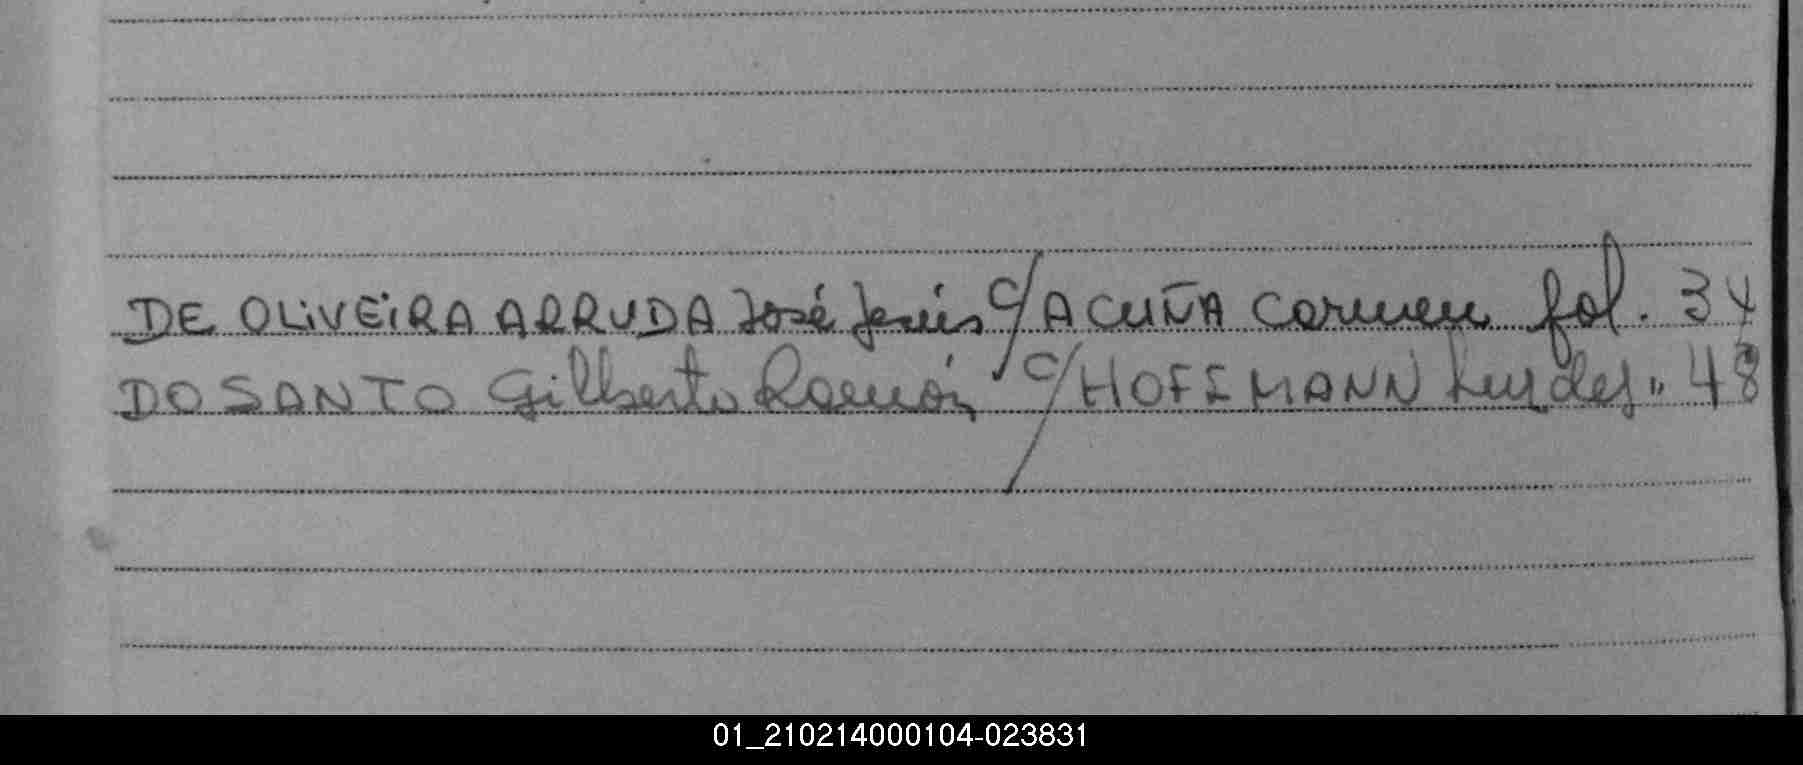 DE OLIVEIRA ARRUDA José Jesús c/ ACUÑA Carmen fol. 34
DO SANTO Gilberto Ramón c/ HOFFMANN Lurdes " 48
01_210214000104-023831